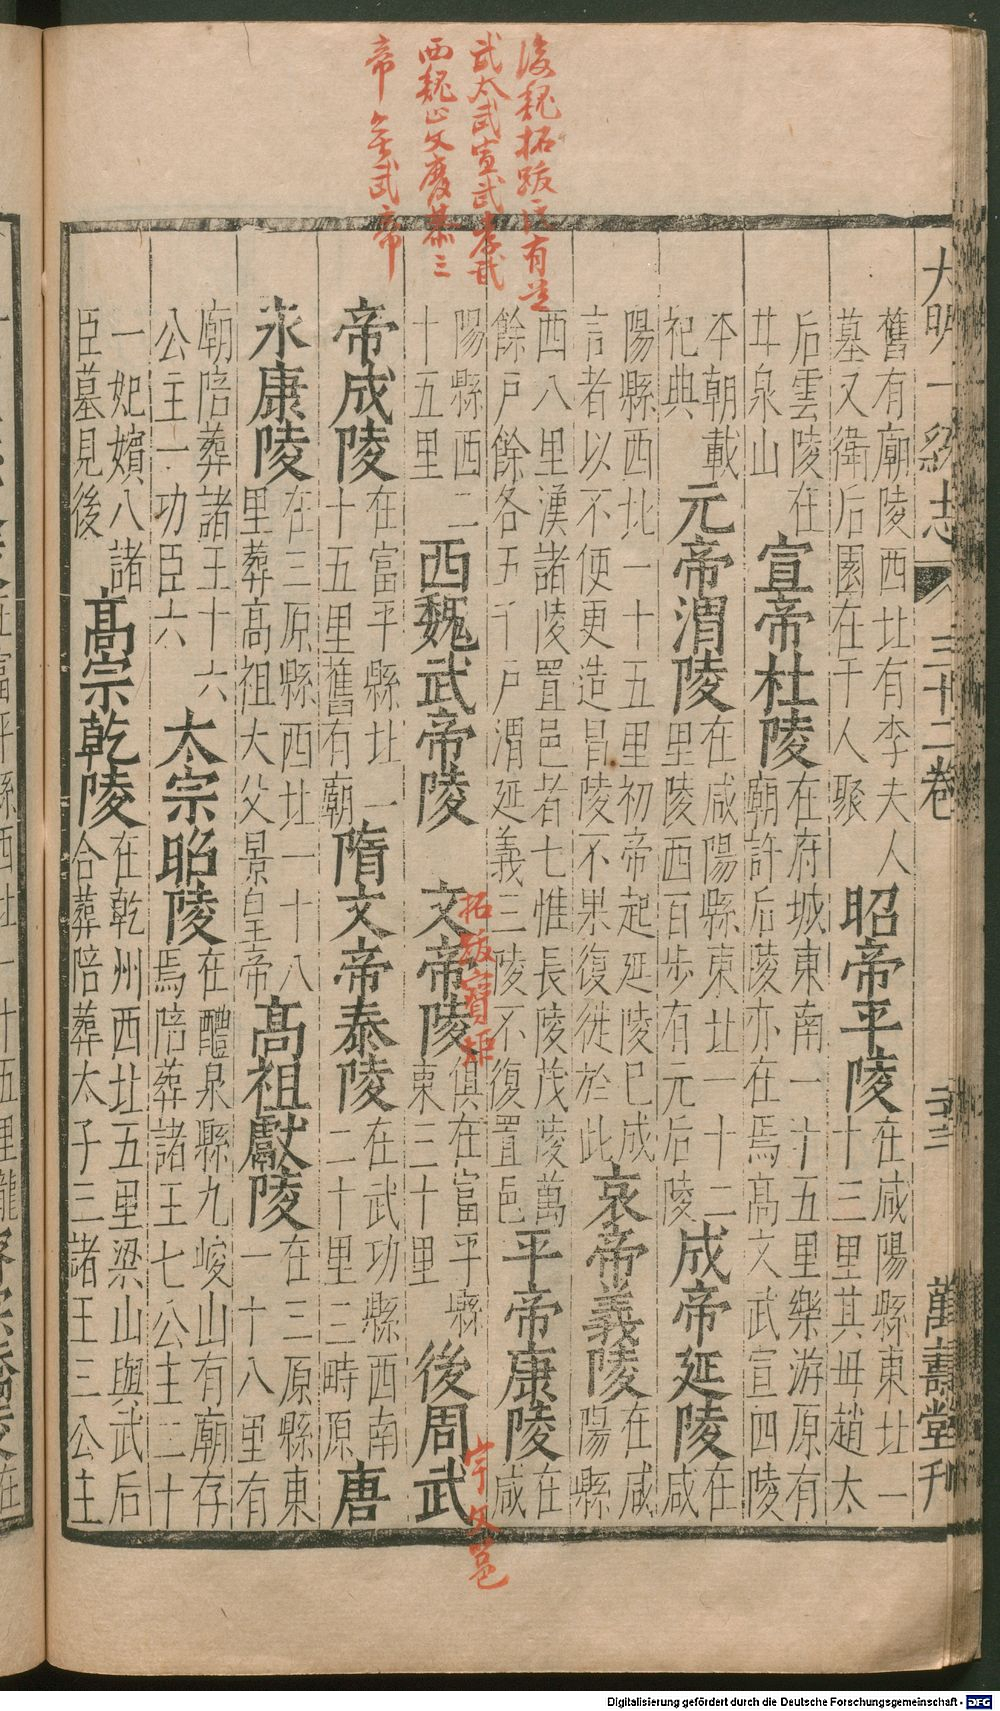 後魏拓跋氏有道
武太武宣武孝武
西魏止文廢恭三
帝無武帝
大明一統志 三十二卷 萬壽堂刊
舊有廟陵西北有李夫人
墓又衛后園在千人聚
昭帝平陵
在咸陽縣東北一
十三里其毋趙太
后雲陵在
甘泉山
宣帝杜陵
在府城東南一十五里樂游原有
廟許后陵亦在焉高文武宣四陵
本朝載
祀典
元帝渭陵
在咸陽縣東北一十二
里陵西百步有元后陵
成帝延陵
在
咸
陽縣西北一十五里初帝起延陵已成
言者以不便更造昌陵不果復徙於此
哀帝義陵
在咸
陽縣
西八里漢諸陵置邑者七惟長陵茂陵萬
餘戶餘各五千戶渭延義三陵不復置邑
平帝康陵
在
咸
陽縣西二
十五里
西魏武帝陵 文帝陵
拓跋寶炬
俱在富平縣
東三十里
後周武
宇文邕
帝成陵
在富平縣北一
十五里舊有廟
隋文帝泰陵
在武功縣西南
二十里三畤原
唐
永康陵
在三原縣西北一十八
里葬高祖大父景皇帝
高祖獻陵
在三原縣東
一十八里有
廟陪葬諸王十六
公主一功臣六
太宗昭陵
在醴泉縣九嵕山有廟存
焉陪葬諸王七公主二十
一妃嬪八諸
臣墓見後
高宗乾陵
在乾州西北五里梁山與武后
合葬陪葬太子三諸王三公主
Digitalisierung gefördert durch die Deutsche Forschungsgemeinschaft - DFG